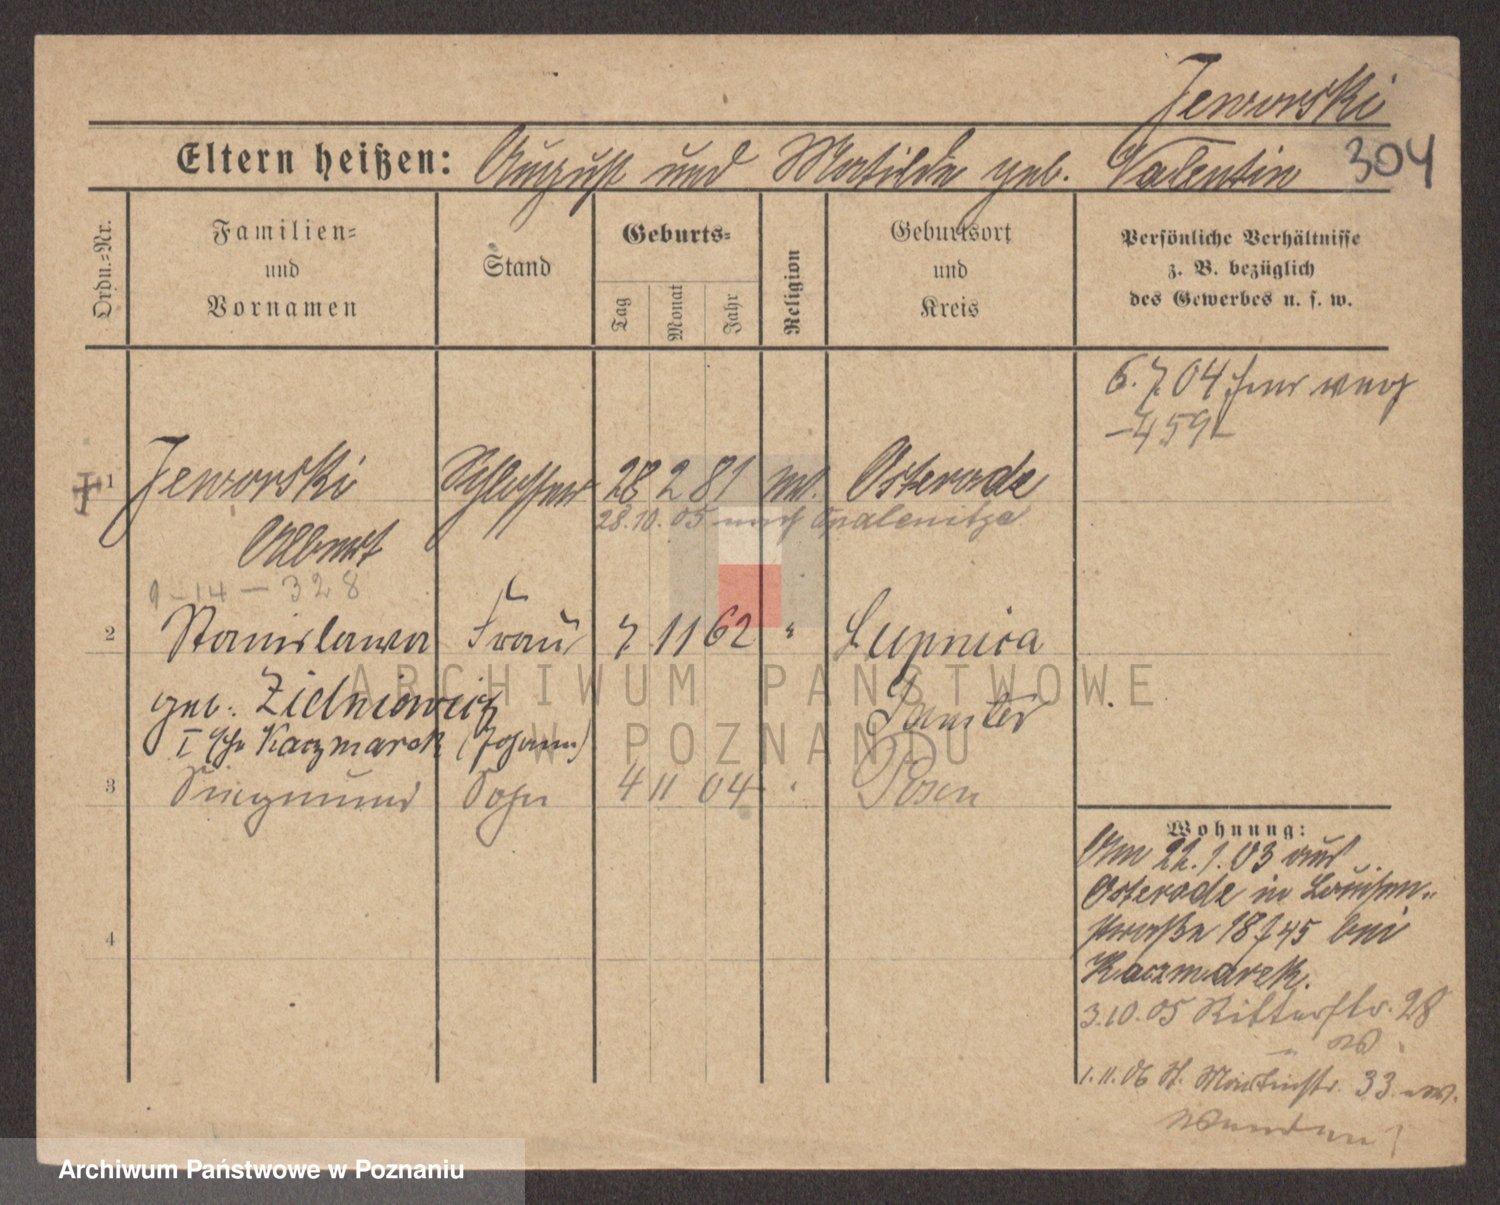 Jeworski
Eltern heißen: August und Matilde geb. Valentin 304
Ordn.=Nr.
Familien=
und
Vornamen
Stand
Geburts=
Tag
Monat
Jahr
Religion
Geburtsort
und
Kreis
Persönliche Verhältnisse
z. B. bezüglich
des Gewerbes u. s. w.
6. 7. 04 weg
-459-
1 Jeworski Schlosser 28 2 81 Osterode
28.10.05 nach Opalenitza
Albert
9-14-328
2 Stanislawa Frau 7 11 62 " Lupnica
geb. Zielniewicz Samter
I Kaczmarek (Johann)
3 Siegmund Sohn 4 11 04 Posen
4
Wohnung:
Am 22.1.03 aus
Osterode in Louisen-
straße 18 bei
Kaczmarek.
3.10.05 Ritterstr. 28
1.11.06 St. Martinstr. 33
ARCHIWUM PAŃSTWOWE
W POZNANIU
Archiwum Państwowe w Poznaniu